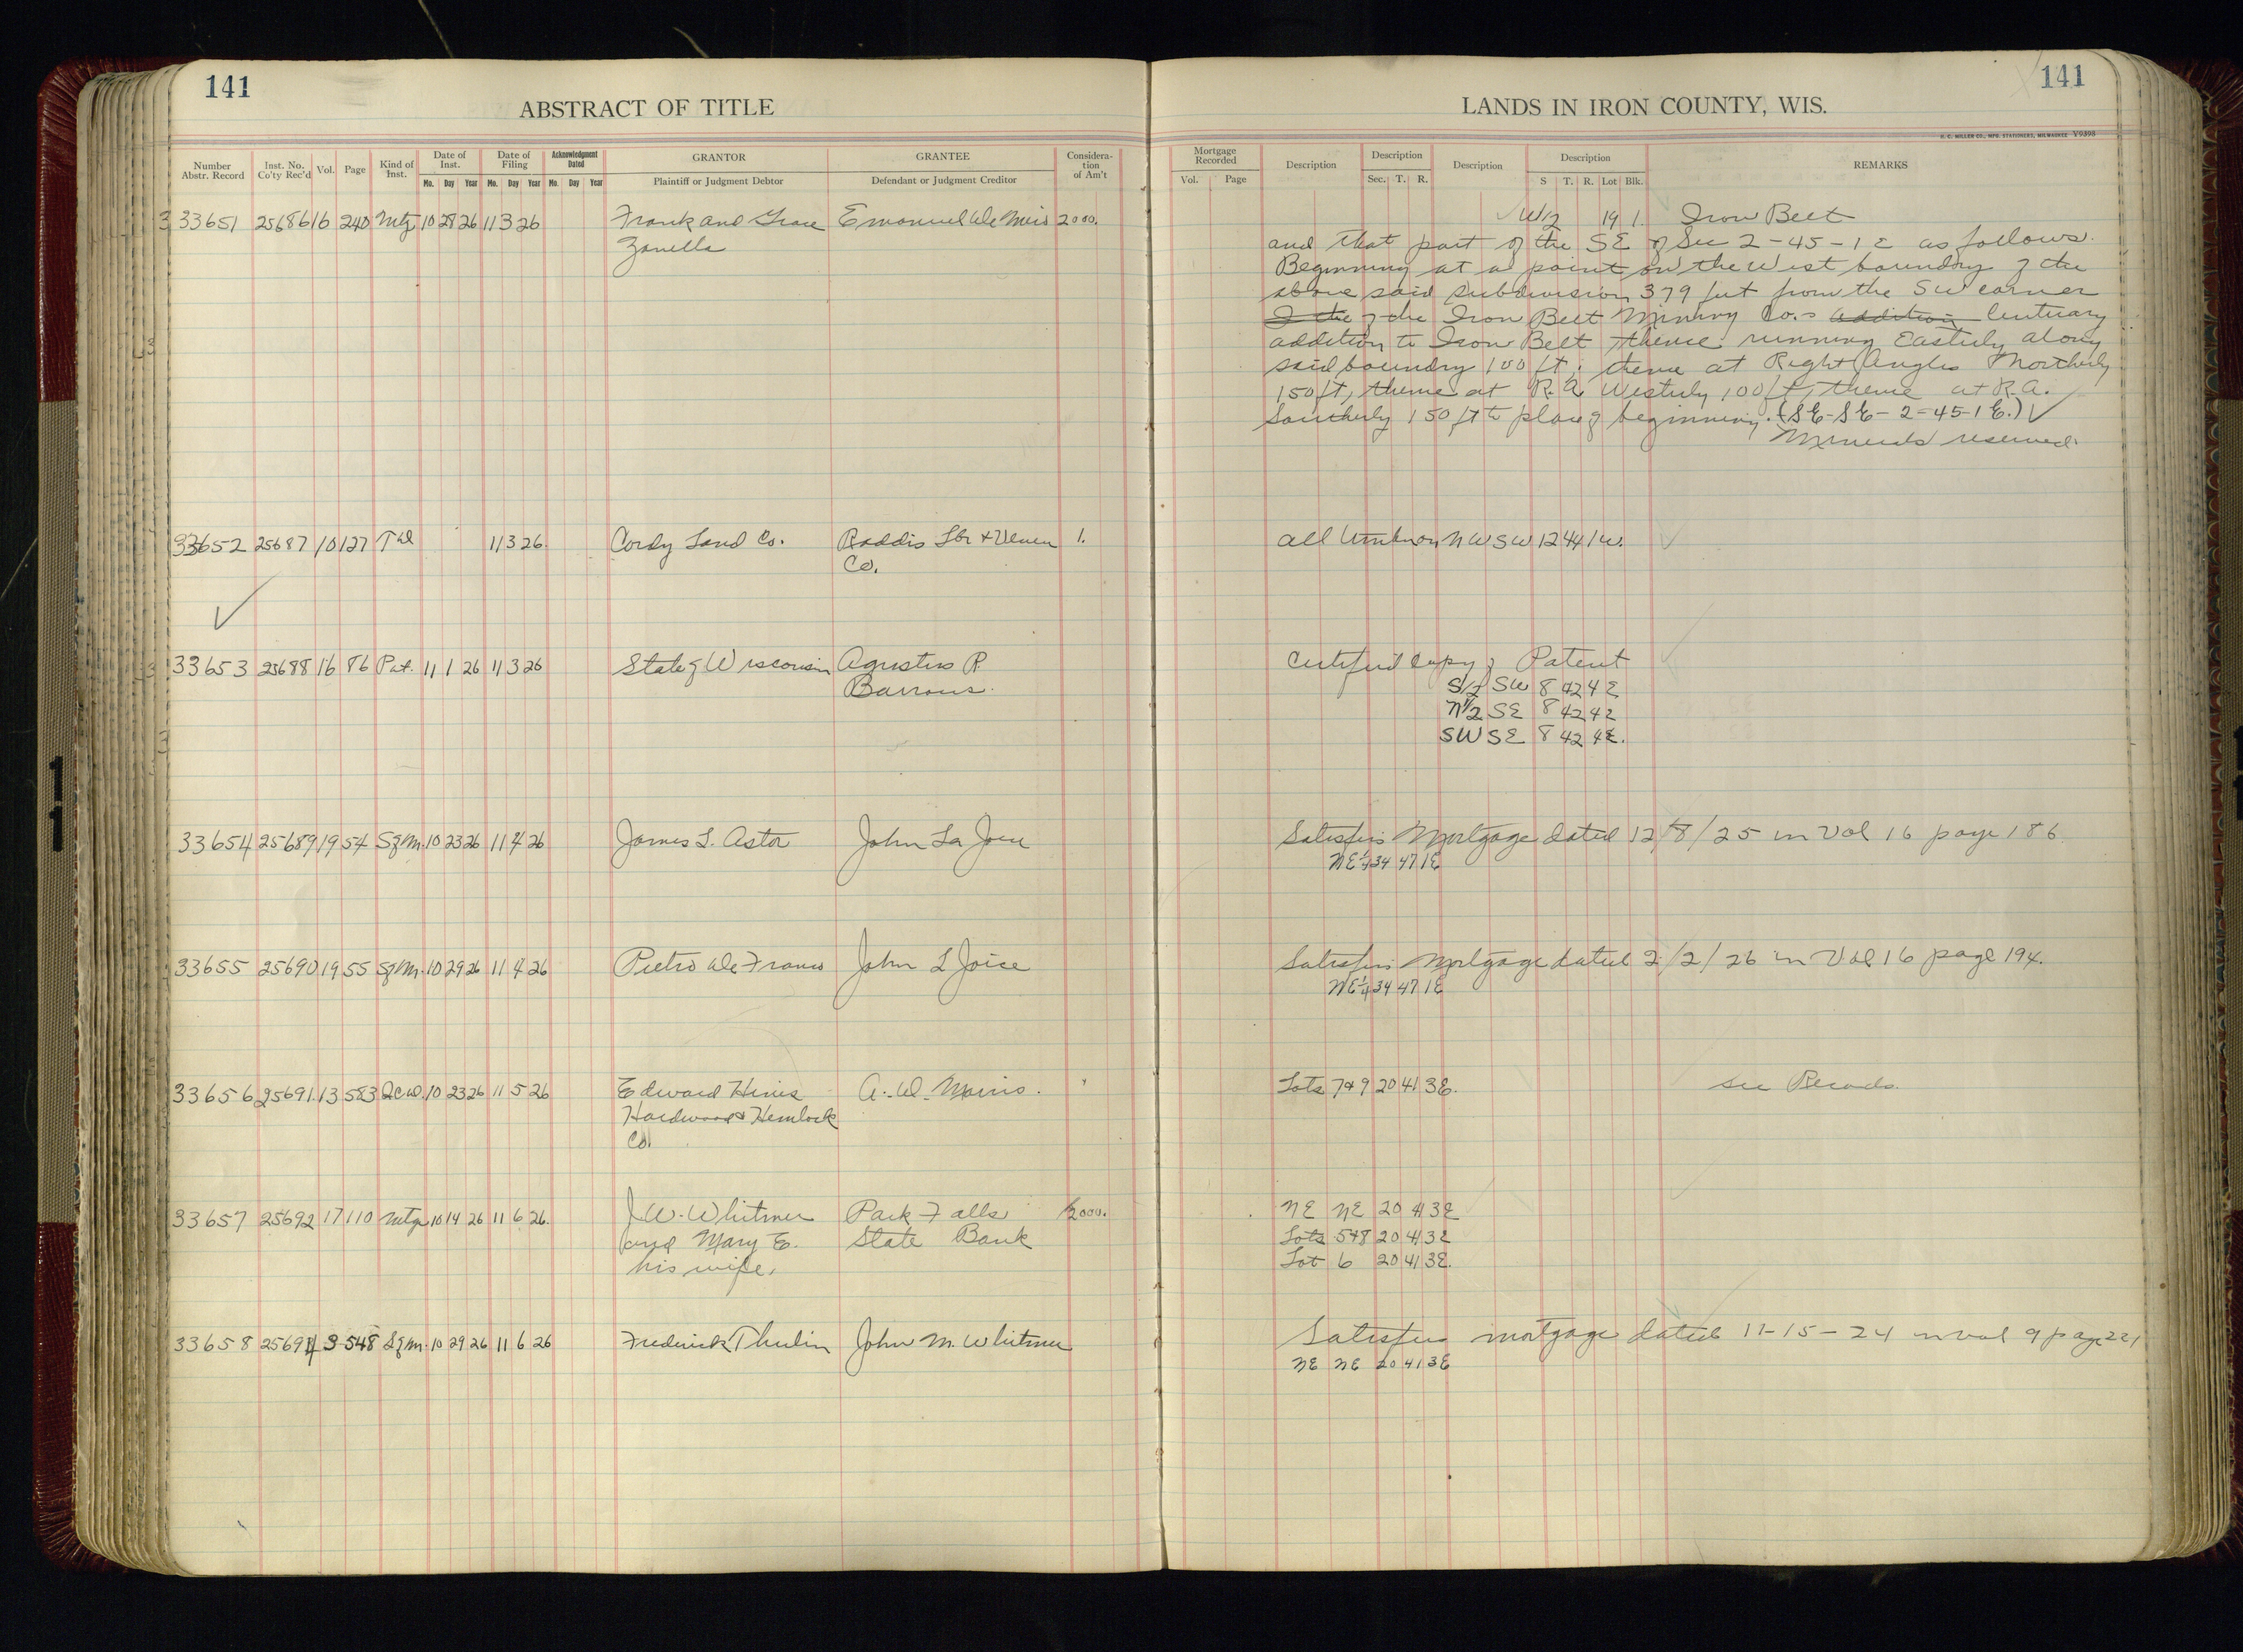 141
141
ABSTRACT OF TITLE
LANDS IN IRON COUNTY, WIS.
H. C. MILLER CO., MFG. STATIONERS, MILWAUKEE Y9898
Number Abstr. Record
Inst. No. Co'ty Rec'd
Vol.
Page
Kind of Inst.
Date of Inst.
Mo. Day Year
Date of Filing
Mo. Day Year
Acknowledgment Dated
Mo. Day Year
GRANTOR
Plaintiff or Judgment Debtor
GRANTEE
Defendant or Judgment Creditor
Considera-
tion
of Am't
Mortgage Recorded
Vol. Page
Description
Description
Sec. T. R.
Description
Description
S T. R. Lot Blk.
REMARKS
33651 25686 16 240 Mtg 10 28 26 11 3 26 Frank and Grace Emanuel De Meis 2000. W/2 19 1. Iron Belt
Zanella
and that part of the SE of Sec 2-45-1 E as follows.
Beginning at a point on the West boundry of the
above said subdivision 379 feet from the SW corner
of the of the Iron Belt Mining Co.s addition Centuary
addition to Iron Belt thence running Easterly along
said boundry 100 ft; thence at Right Angles Northerly
150 ft, thence at R.A Westerly 100 ft, thence at R.A.
Southerly 150 ft to place of beginning. (SE-SE-2-45-1 E.) ✓
Minerals reserved.
33652 25687 10 127 TD 11 3 26. Cordy Land Co. Roddis Lbr & Veneer 1. all timber on NW SW 12 44 1W.
Co.
33653 25688 16 86 Pat. 11 1 26 11 3 26 State of Wisconsin Agustus R Certified Copy of Patent
Barrows.
S/2 SW 8 42 4 E
N/2 SE 8 42 4 E
SW SE 8 42 4 E.
33654 25689 19 54 S of M. 10 23 26 11 4 26 James L. Astor John La Joie Satisfies Mortgage dated 12/8/25 in Vol 16 page 186
NE 1/4 34 47 1E
33655 25690 19 55 S of M. 10 29 26 11 4 26 Pietro De Franco John L Joice Satisfies Mortgage dated 2/2/26 in Vol 16 page 194.
NE 1/4 34 47 1E
33656 25691 13 583 QCD. 10 23 26 11 5 26 Edward Hines A. D. Morris. Lots 7&9 20 41 3E. See Records.
Hardwood & Hemlock
Co.
33657 25692 17 110 Mtg 10 14 26 11 6 26. J. W. Whitmer Park Falls 2000. NE NE 20 41 3E
and Mary E. State Bank Lots 5&8 20 41 3E
his wife. Lot 6 20 41 3E.
33658 25694 3 548 S of M. 10 29 26 11 6 26 Frederick Thulin John M. Whitmer Satisfies mortgage dated 11-15-24 in vol 9 page 221
NE NE 20 41 3E